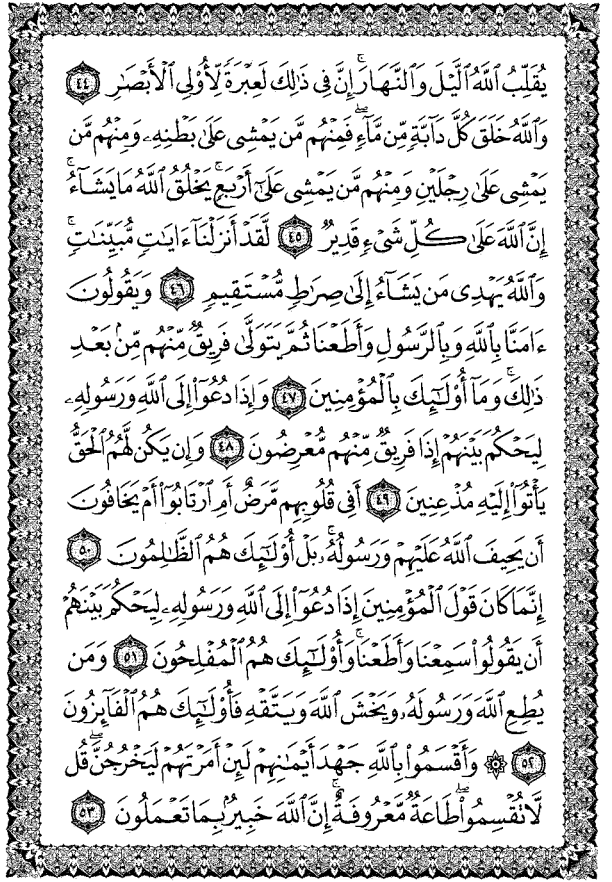 يُقَلِّبُ ٱللَّهُ ٱلَّيْلَ وَٱلنَّهَارَ ۚ إِنَّ فِى ذَٰلِكَ لَعِبْرَةً لِّأُو۟لِى ٱلْأَبْصَٰرِ ٤٤
وَٱللَّهُ خَلَقَ كُلَّ دَآبَّةٍ مِّن مَّآءٍ ۖ فَمِنْهُم مَّن يَمْشِى عَلَىٰ بَطْنِهِۦ وَمِنْهُم مَّن
يَمْشِى عَلَىٰ رِجْلَيْنِ وَمِنْهُم مَّن يَمْشِى عَلَىٰٓ أَرْبَعٍ ۚ يَخْلُقُ ٱللَّهُ مَا يَشَآءُ ۚ
إِنَّ ٱللَّهَ عَلَىٰ كُلِّ شَىْءٍ قَدِيرٌ ٤٥ لَّقَدْ أَنزَلْنَآ ءَايَٰتٍ مُّبَيِّنَٰتٍ ۚ
وَٱللَّهُ يَهْدِى مَن يَشَآءُ إِلَىٰ صِرَٰطٍ مُّسْتَقِيمٍ ٤٦ وَيَقُولُونَ
ءَامَنَّا بِٱللَّهِ وَبِٱلرَّسُولِ وَأَطَعْنَا ثُمَّ يَتَوَلَّىٰ فَرِيقٌ مِّنْهُم مِّنۢ بَعْدِ
ذَٰلِكَ ۚ وَمَآ أُو۟لَٰٓئِكَ بِٱلْمُؤْمِنِينَ ٤٧ وَإِذَا دُعُوٓا۟ إِلَى ٱللَّهِ وَرَسُولِهِۦ
لِيَحْكُمَ بَيْنَهُمْ إِذَا فَرِيقٌ مِّنْهُم مُّعْرِضُونَ ٤٨ وَإِن يَكُن لَّهُمُ ٱلْحَقُّ
يَأْتُوٓا۟ إِلَيْهِ مُذْعِنِينَ ٤٩ أَفِى قُلُوبِهِم مَّرَضٌ أَمِ ٱرْتَابُوٓا۟ أَمْ يَخَافُونَ
أَن يَحِيفَ ٱللَّهُ عَلَيْهِمْ وَرَسُولُهُۥ ۚ بَلْ أُو۟لَٰٓئِكَ هُمُ ٱلظَّٰلِمُونَ ٥٠
إِنَّمَا كَانَ قَوْلَ ٱلْمُؤْمِنِينَ إِذَا دُعُوٓا۟ إِلَى ٱللَّهِ وَرَسُولِهِۦ لِيَحْكُمَ بَيْنَهُمْ
أَن يَقُولُوا۟ سَمِعْنَا وَأَطَعْنَا ۚ وَأُو۟لَٰٓئِكَ هُمُ ٱلْمُفْلِحُونَ ٥١ وَمَن
يُطِعِ ٱللَّهَ وَرَسُولَهُۥ وَيَخْشَ ٱللَّهَ وَيَتَّقْهِ فَأُو۟لَٰٓئِكَ هُمُ ٱلْفَآئِزُونَ
٥٢ ۞ وَأَقْسَمُوا۟ بِٱللَّهِ جَهْدَ أَيْمَٰنِهِمْ لَئِنْ أَمَرْتَهُمْ لَيَخْرُجُنَّ ۖ قُل
لَّا تُقْسِمُوا۟ ۖ طَاعَةٌ مَّعْرُوفَةٌ ۚ إِنَّ ٱللَّهَ خَبِيرٌۢ بِمَا تَعْمَلُونَ ٥٣